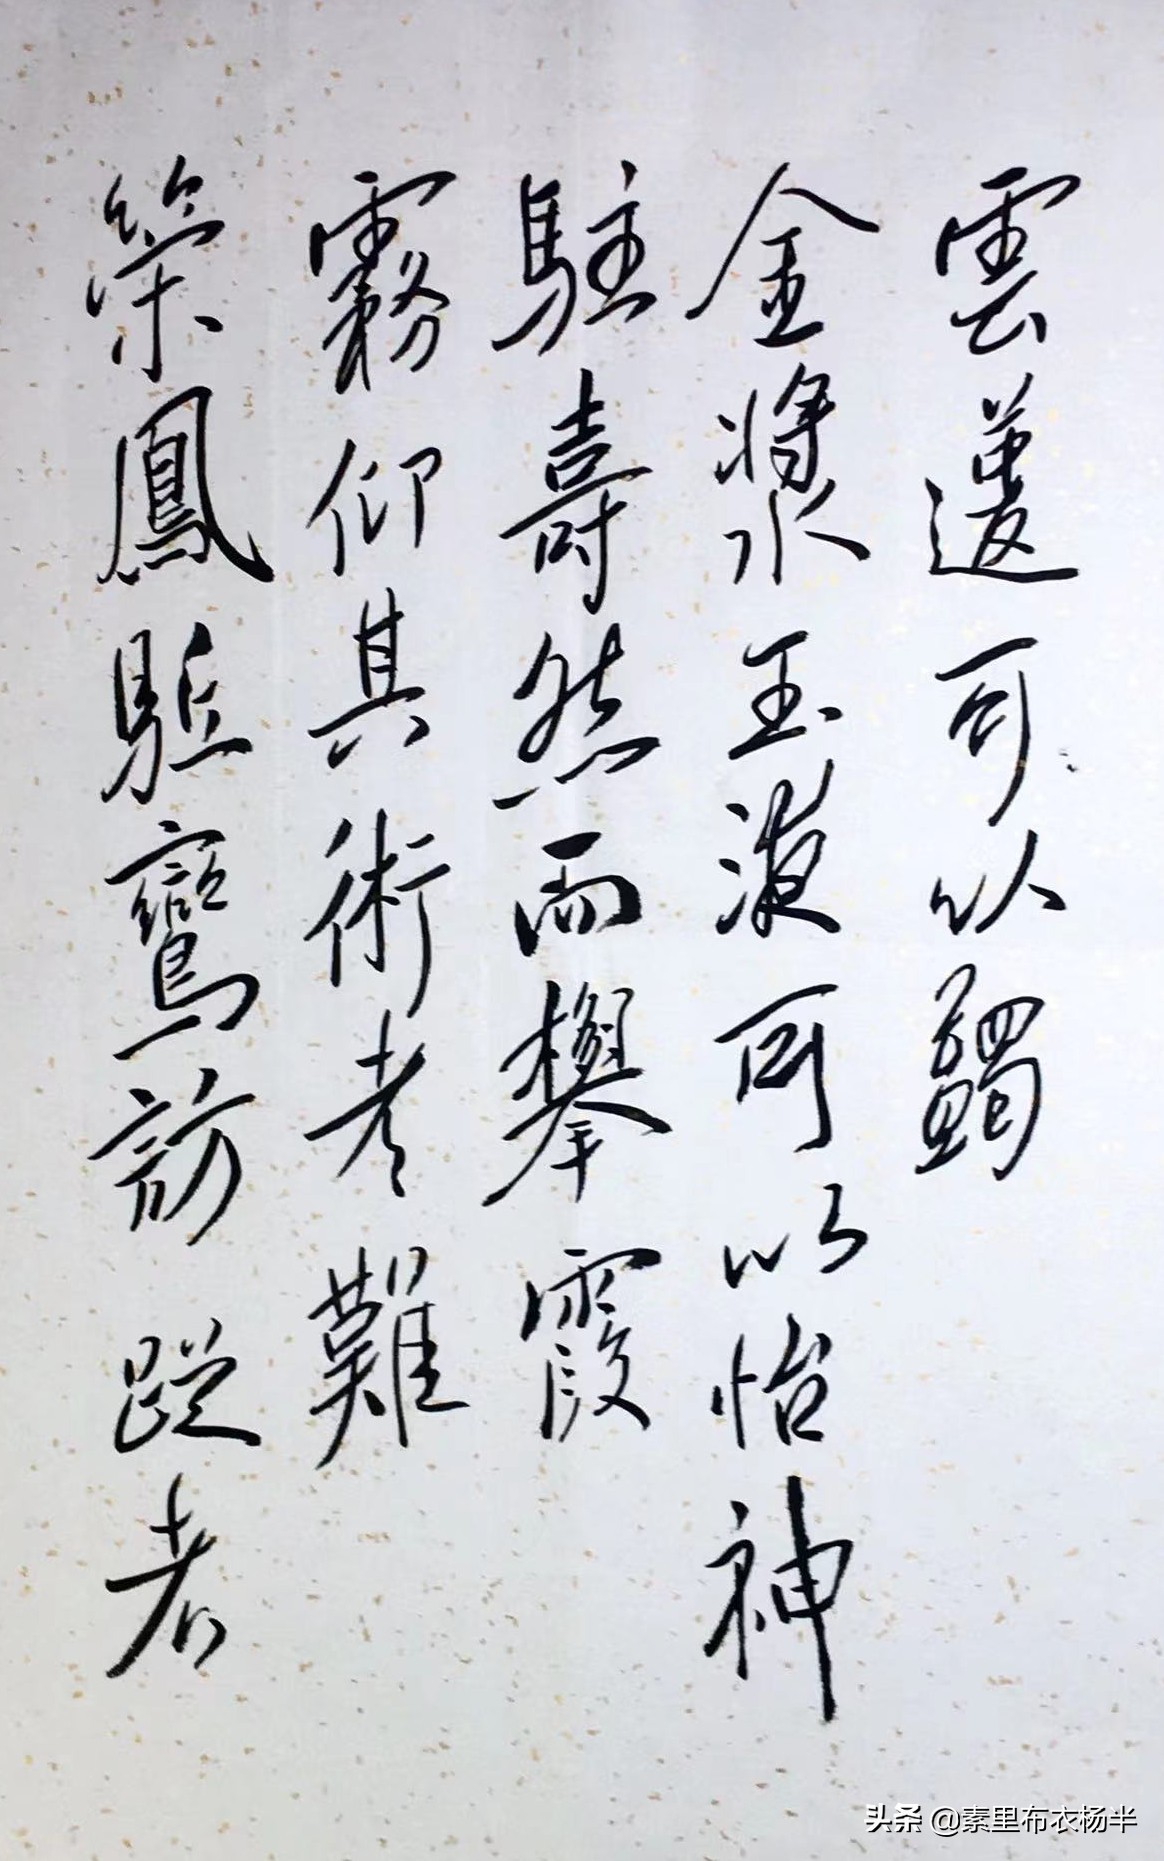 雲可以蠲
金漿玉液可以怡神
駐壽然而舉霞
霧仰其術者難
策鳳駈鸞訪蹤者
头条 @素里布衣杨半